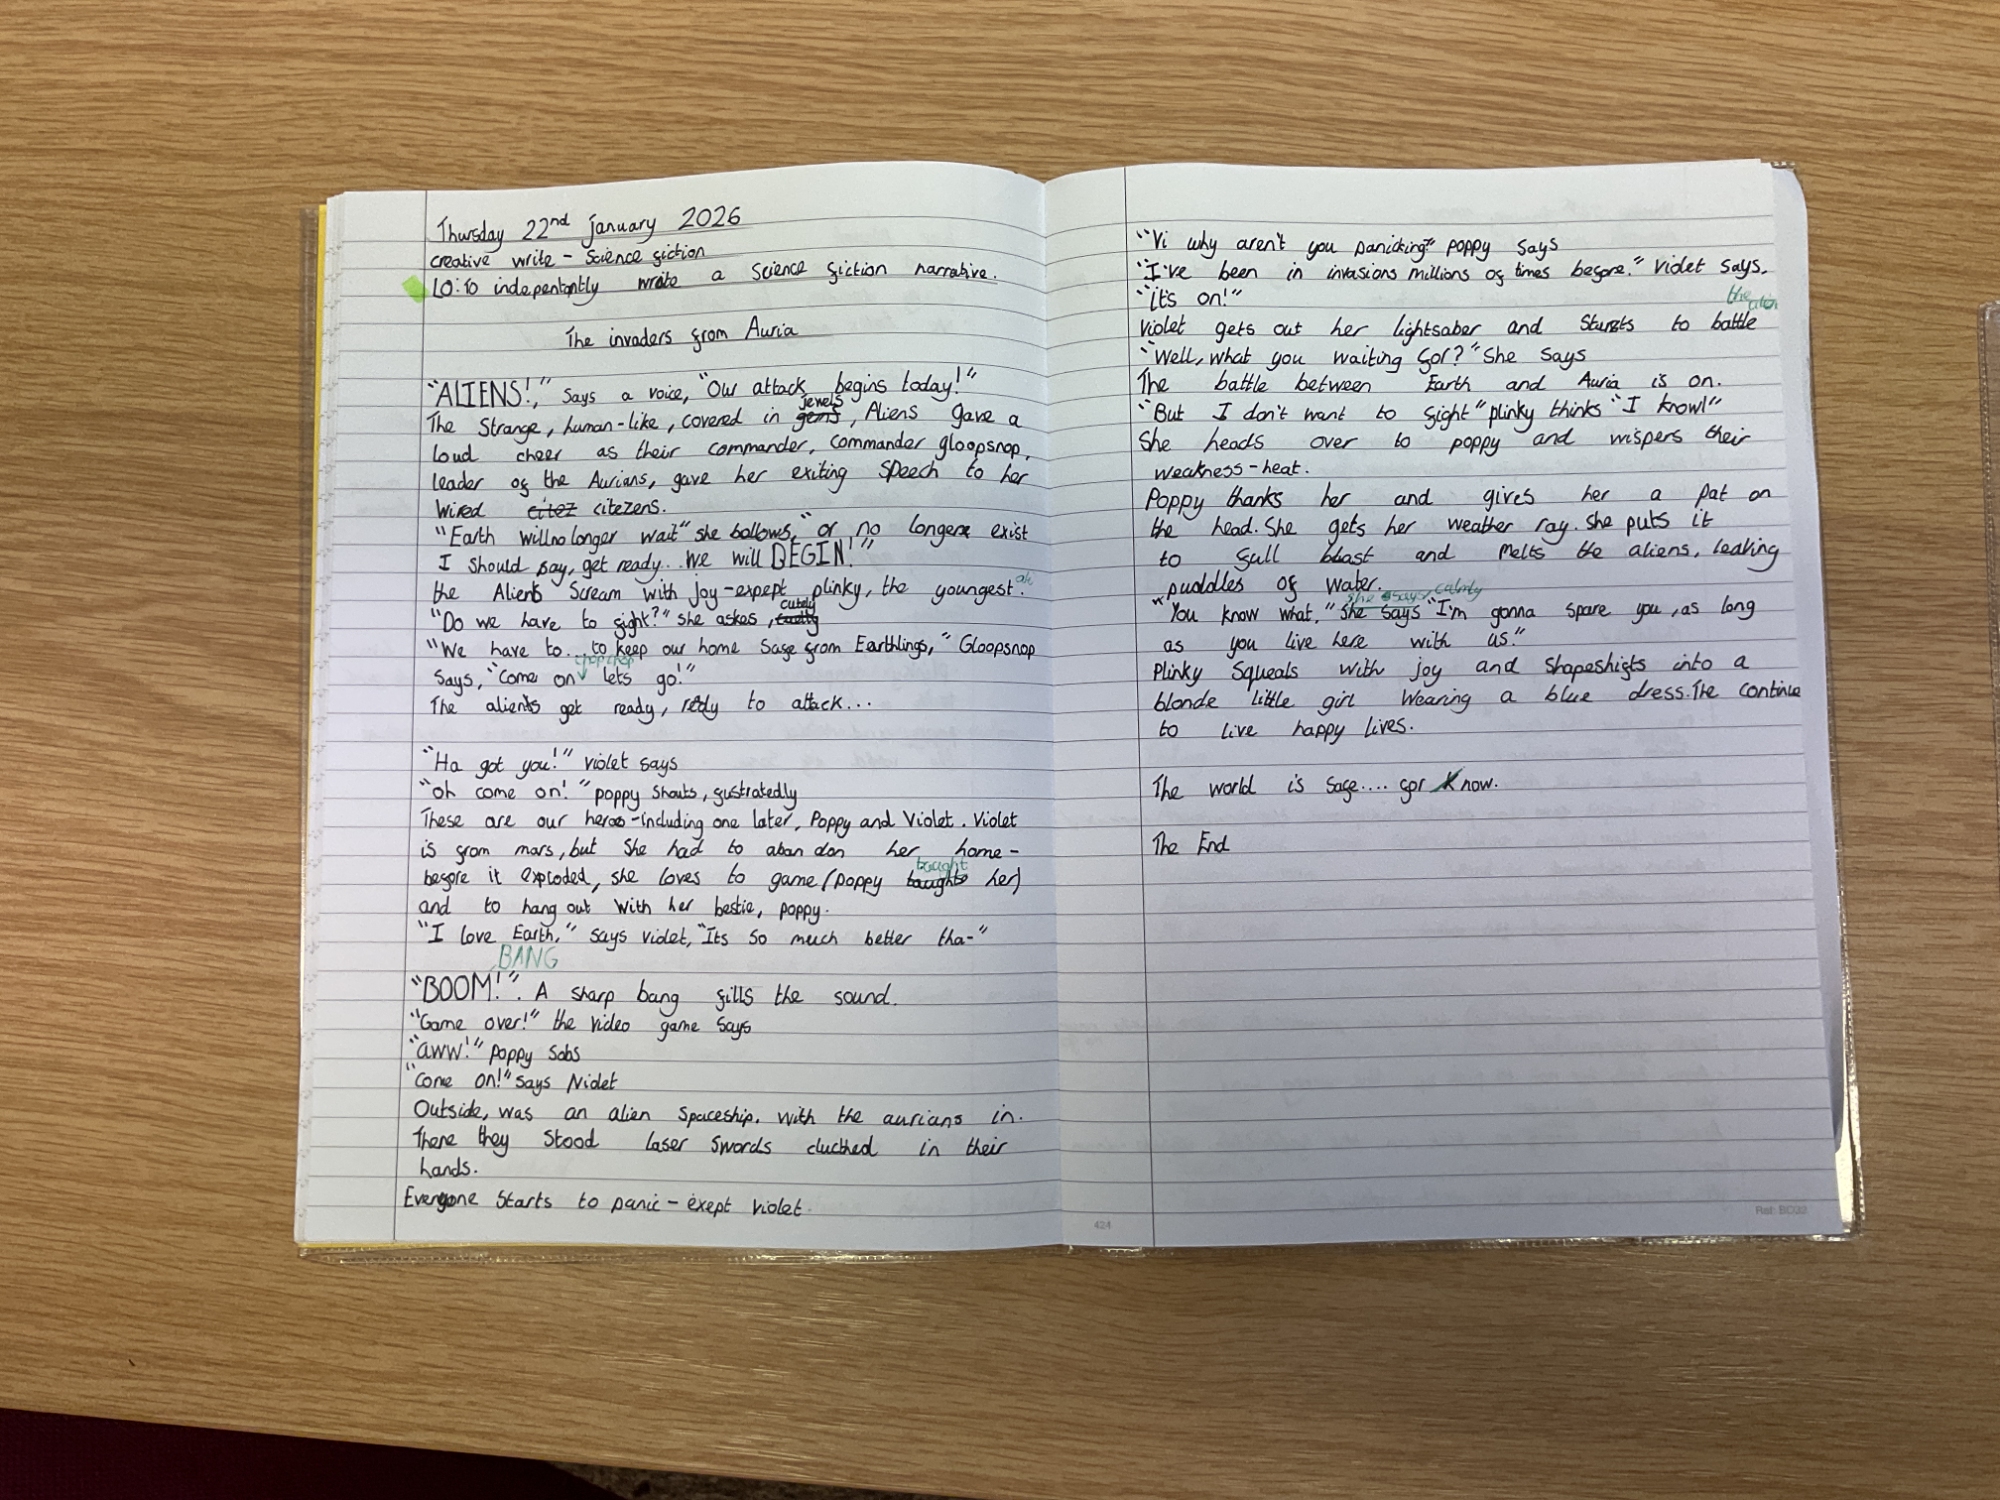 Thursday 22nd january 2026
creative write - Science fiction
LO: To indepentantly write a Science fiction narrative.
The invaders from Auria
"ALIENS!," Says a voice, "Our attack begins today!"
jewels
The Strange, human-like, covered in gems, Aliens gave a
loud cheer as their commander, commander gloopsnop,
leader of the Aurians, gave her exiting Speech to her
Wired citez citezens.
"Earth willnolonger wait" she bollows, "or no longer exist
I should say, get ready... we will BEGIN!"
the Aliens Scream with joy-expept plinky, the youngest.
cutely
"Do we have to fight?" she askes,
"We have to... to keep our home Safe from Earthlings," Gloopsnop
chop chop
Says, "Come on lets go!"
The aliens get ready, redy to attack...
"Ha got you!" violet says
"oh come on!" poppy Shouts, fustratedly
These are our heros-including one later, Poppy and Violet. Violet
is from mars, but She had to abandon her home-
taught
before it exploded, she loves to game (poppy taught her)
and to hang out with her bestie, poppy.
"I love Earth," says violet, "Its so much better tha-"
BANG
"BOOM!". A sharp bang fills the sound.
"Game over!" the video game says
"aww!" poppy Sobs
"Come on!" says Violet
Outside, was an alien Spaceship. with the aurians in.
There they Stood laser Swords clucthed in their
hands.
Everyone Starts to panic - exept violet.
424
"Vi why aren't you panicking?" poppy Says
"I've been in invasions millions of times before." violet says.
"it's on!"
the alien
violet gets out her lightsaber and Starts to battle
"Well, what you waiting for?" She says
The battle between Earth and Auria is on.
"But I don't want to fight" plinky thinks "I know!"
She heads over to poppy and wispers their
weakness - heat.
Poppy thanks her and gives her a pat on
the head. She gets her weather ray. She puts it
to full blast and Melts the aliens, leaking
puddles of water.
she says, calmly
"You know what," She Says "I'm gonna spare you, as long
as you live here with us."
Plinky Squeals with joy and shapeshifts into a
blonde little girl Wearing a blue dress. The continue
to live happy lives.
The world is safe.... for now.
The End
Ref: BC02